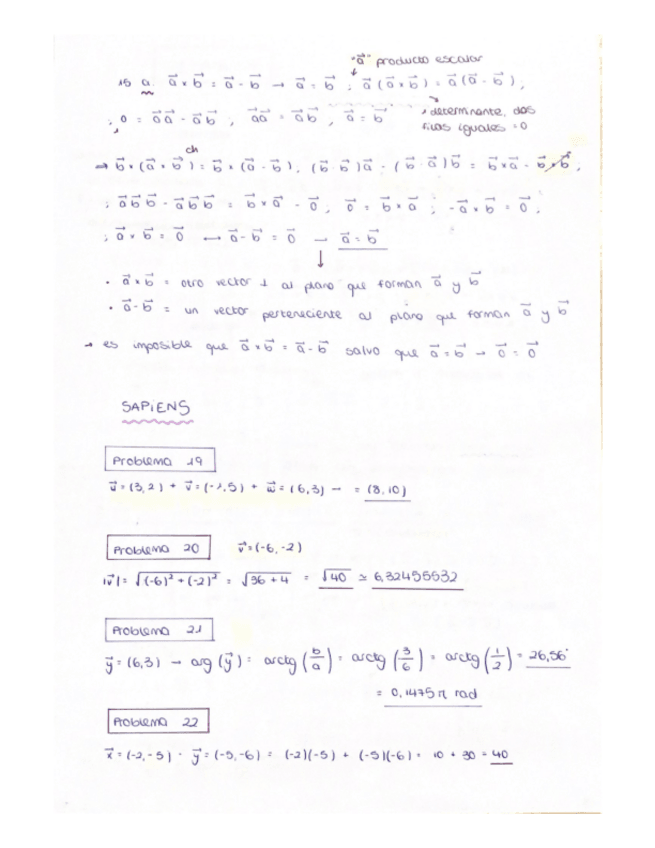 "a⃗" producto escalar
15 a. a⃗ × b⃗ = a⃗ - b⃗ → a⃗ = b⃗ ; a⃗ (a⃗ × b⃗) = a⃗ (a⃗ - b⃗),
; 0 = a⃗a⃗ - a⃗b⃗ , a⃗a⃗ = a⃗b⃗ , a⃗ = b⃗
determinante, dos filas iguales = 0
→ b⃗ × (a⃗ × b⃗) = b⃗ × (a⃗ - b⃗), (b⃗ b⃗)a⃗ - (b⃗ · a⃗)b⃗ = b⃗ × a⃗ - b⃗ × b⃗ ;
; a⃗ b⃗ b⃗ - a⃗ b⃗ b⃗ = b⃗ × a⃗ - 0⃗ , 0⃗ = b⃗ × a⃗ ; -a⃗ × b⃗ = 0⃗ ,
; a⃗ × b⃗ = 0⃗ → a⃗ - b⃗ = 0⃗ → a⃗ = b⃗
↓
· a⃗ × b⃗ = otro vector ⊥ al plano que forman a⃗ y b⃗
· a⃗ - b⃗ = un vector perteneciente al plano que forman a⃗ y b⃗
→ es imposible que a⃗ × b⃗ = a⃗ - b⃗ salvo que a⃗ = b⃗ → 0⃗ = 0⃗
SAPIENS
Problema 19
u⃗ = (3,2) + v⃗ = (-1,5) + w⃗ = (6,3) → = (8,10)
Problema 20 v⃗ = (-6,-2)
|v⃗| = √((-6)² + (-2)²) = √(36 + 4) = √40 ≃ 6,32455532
Problema 21
y⃗ = (6,3) → arg (y⃗) = arctg (b/a) = arctg (3/6) = arctg (1/2) = 26,56°
= 0,1475π rad
Problema 22
x⃗ = (-2,-5) · y⃗ = (-5,-6) = (-2)(-5) + (-5)(-6) = 10 + 30 = 40